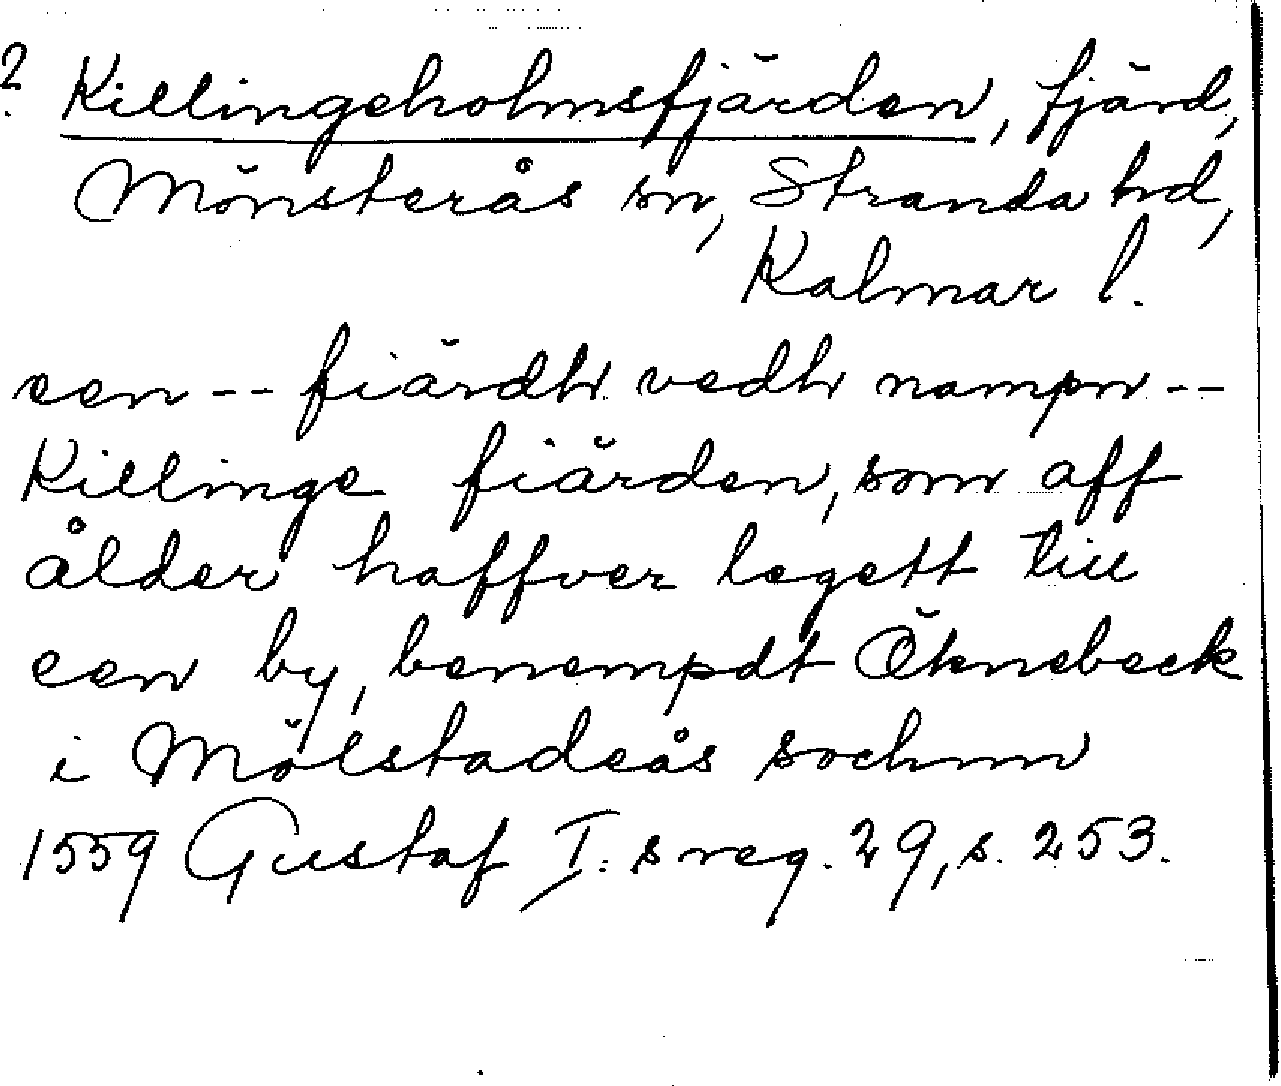 ? Killingeholmsfjärden, fjärd,
Mönsterås sn, Stranda hd,
Kalmar l.
een -- fiärdh vedh nampn --
Killinge fiärden, som aff
ålder haffver legett till
een by, benempdt Öknebeck
i Mölstadeås sochnn
1559 Gustaf I:s reg. 29, s. 253.